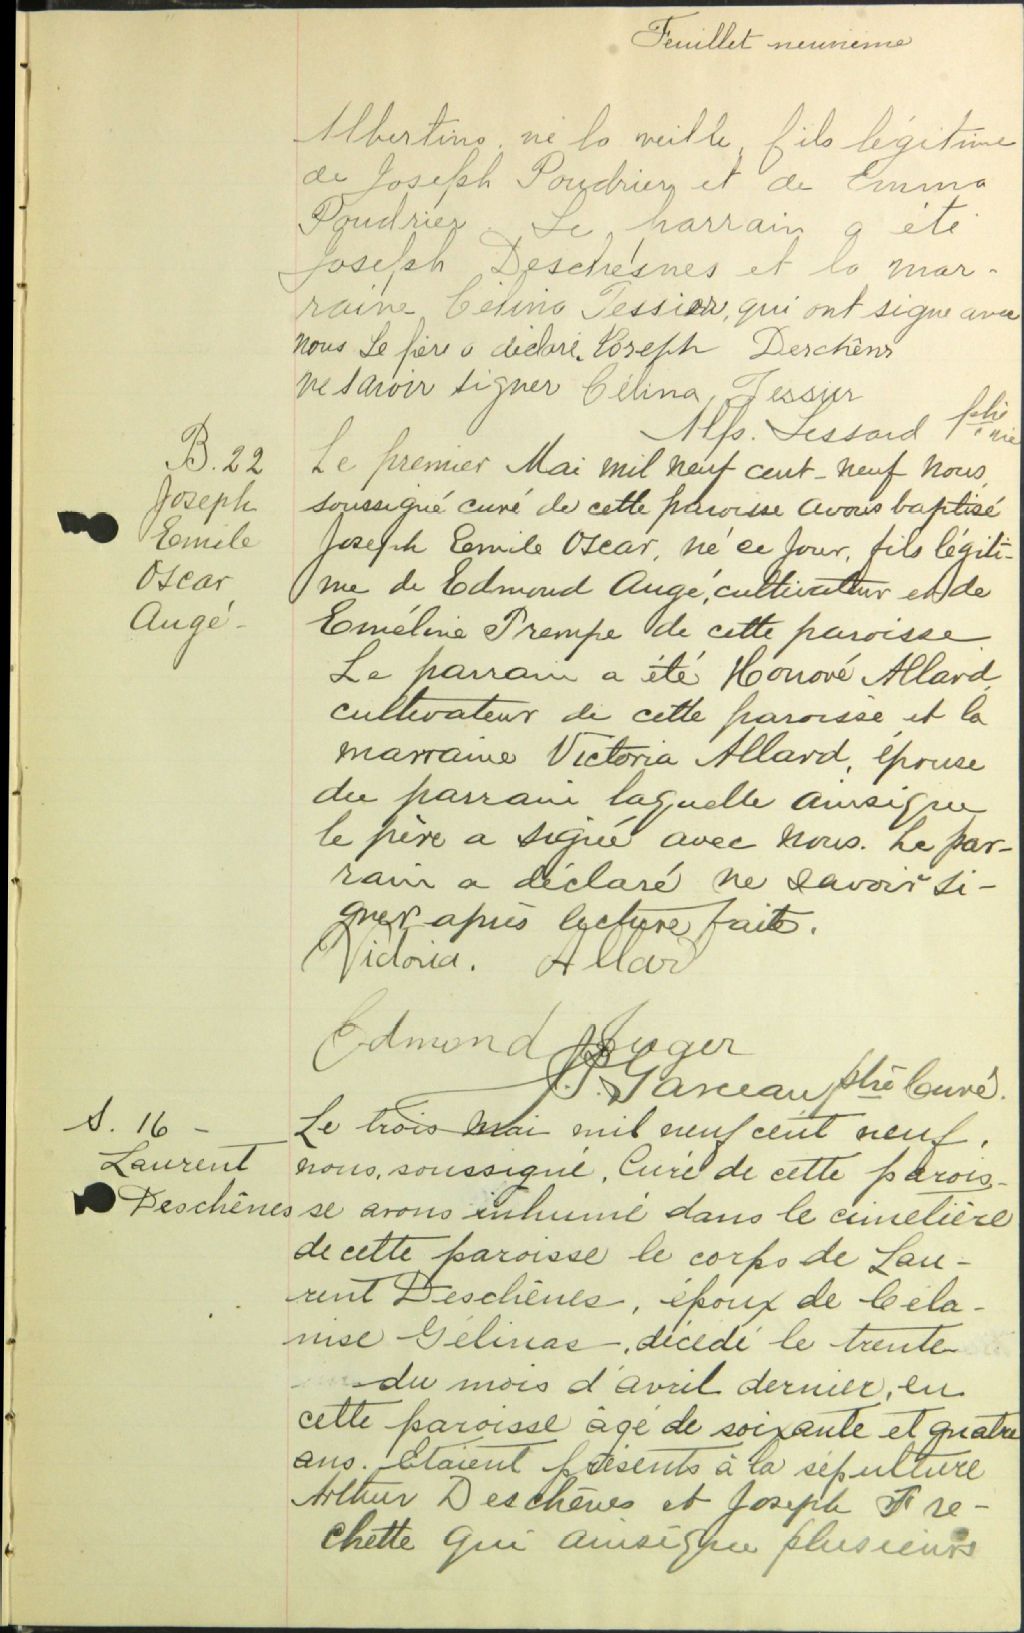 Feuillet neuvième
Albertino, né la veille, fils légitime
de Joseph Poudrier et de Emma
Poudrier. Le parrain a été
Joseph Deschesnes et la mar-
raine Célina Tessier, qui ont signé avec
nous Le père a déclaré. Joseph Deschêns
ne savoir signer Célina Tessier
Alfs. Lessard ptre
B. 22
Joseph
Emile
Oscar
Augé-
Le premier Mai mil neuf cent-neuf nous
soussigné curé de cette paroisse avons baptisé
Joseph Emile Oscar, né ce jour, fils légiti-
me de Edmond Augé, cultivateur et de
Eméline Trempe de cette paroisse.
Le parrain a été Honoré Allard
cultivateur de cette paroisse et la
marraine Victoria Allard, épouse
du parrain laquelle ainsique
le père a signé avec nous. Le par-
rain a déclaré ne savoir si-
gner après lecture faite.
Victoria. Allard
Edmond Auger
Garceau ptre Curé.
S. 16 -
Laurent
Deschênes
Le trois mai mil neuf cent neuf,
nous, soussigné, Curé de cette parois-
se avons inhumé dans le cimetière
de cette paroisse le corps de Lau-
rent Deschênes, époux de Céla-
nise Gélinas, décédé le trente
du mois d'avril dernier, en
cette paroisse âgé de soixante et quatre
ans. Etaient présents à la sépulture
Arthur Deschênes et Joseph Fre-
chette qui ainsique plusieurs